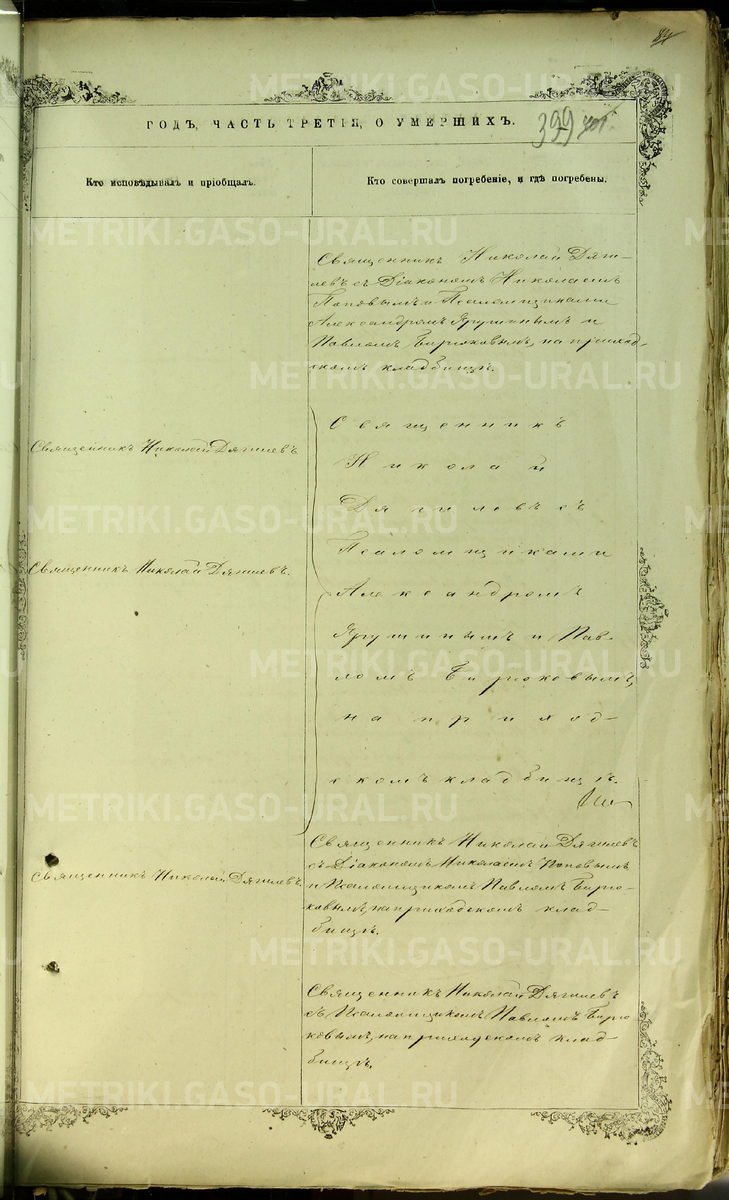 84
ГОДЪ, ЧАСТЬ ТРЕТІЯ, О УМЕРШИХЪ.
399
Кто исповѣдывалъ и пріобщалъ.
Кто совершалъ погребеніе, и гдѣ погребены.
Священникъ Николай Дяги-
левъ съ Діакономъ Николаемъ
Поповымъ и Псаломщиками
Александромъ Ярушинымъ и
Павломъ Бирюковымъ, на приход-
скомъ кладбищѣ.
Священникъ Николай Дягилевъ
Священникъ Николай Дягилевъ.
Священникъ
Николай
Дягилевъ съ
Псаломщиками
Александромъ
Ярушинымъ и Пав-
ломъ Бирюковымъ,
на приход-
скомъ кладбищѣ.
Священникъ Николай Дягилевъ.
Священникъ Николай Дягилевъ
съ Діакономъ Николаемъ Поповымъ
и Псаломщикомъ Павломъ Бирю-
ковымъ, на приходскомъ клад-
бищѣ.
Священникъ Николай Дягилевъ
съ Псаломщикомъ Павломъ Бирю-
ковымъ, на приходскомъ клад-
бищѣ.
METRIKI.GASO-URAL.RU